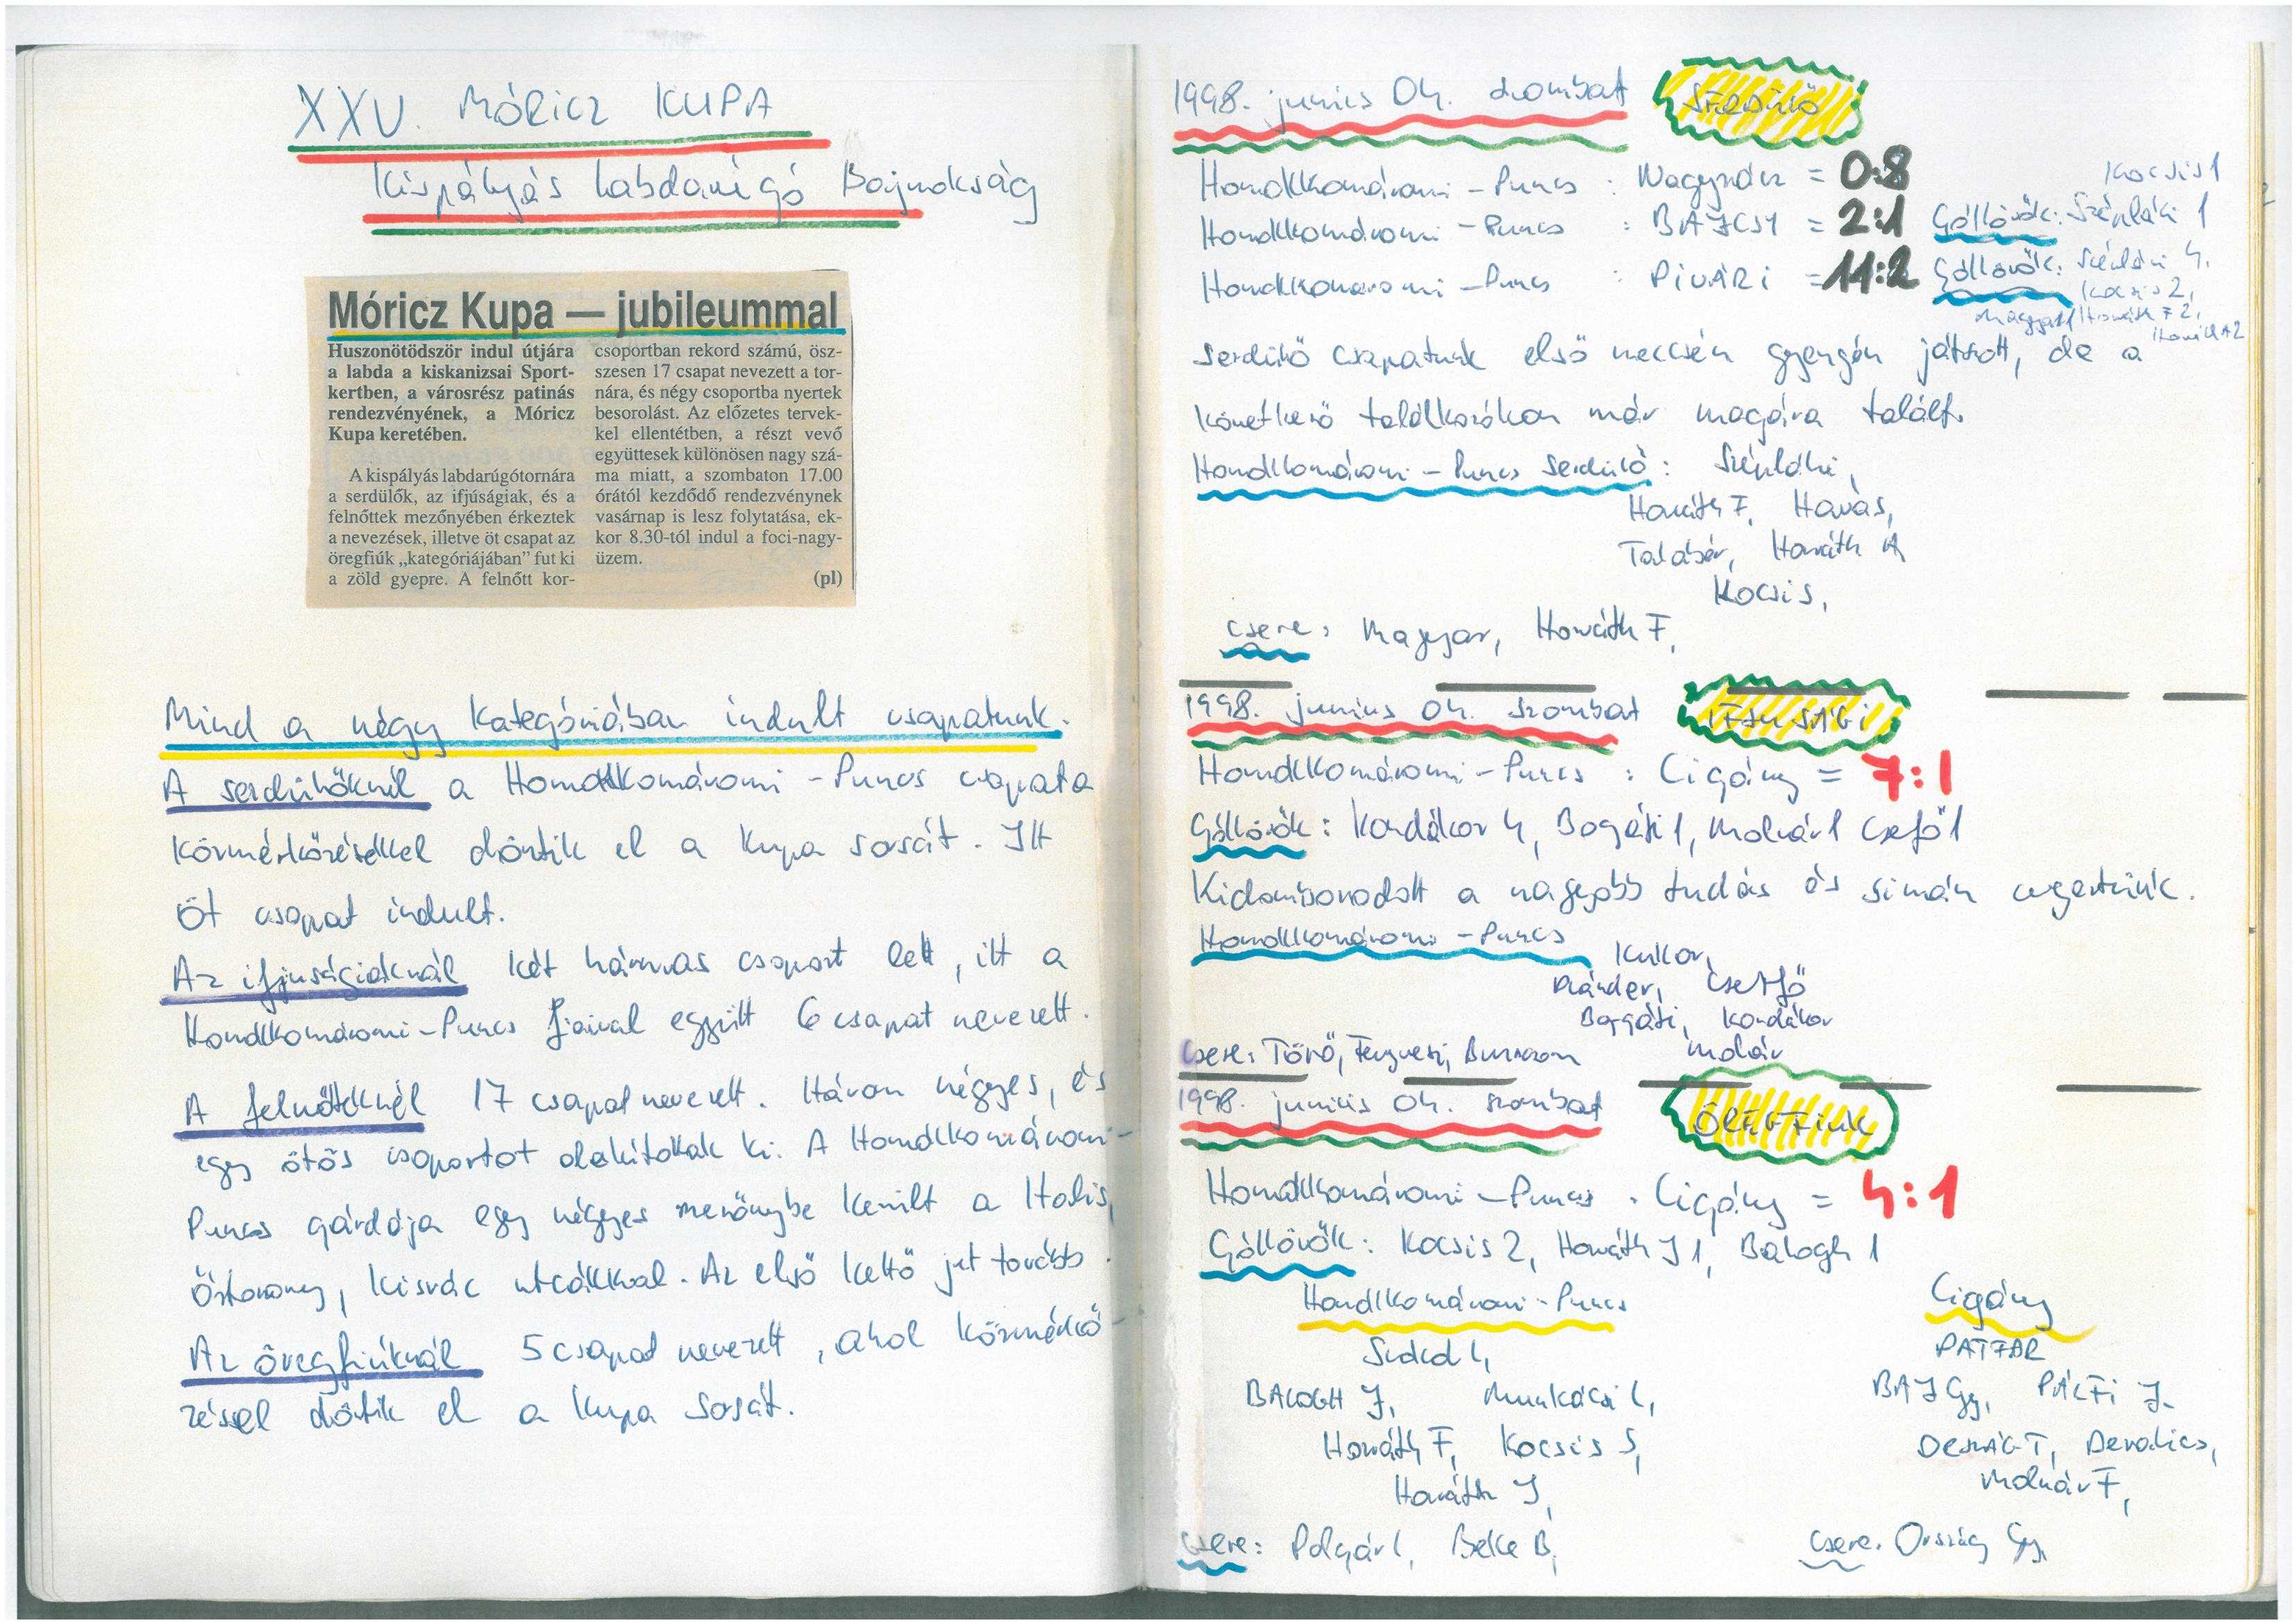 XXV. MÓRICZ KUPA
Kispályás labdarúgó Bajnokság
Móricz Kupa — jubileummal
Huszonötödször indul útjára
a labda a kiskanizsai Sport-
kertben, a városrész patinás
rendezvényének, a Móricz
Kupa keretében.
A kispályás labdarúgótornára
a serdülők, az ifjúságiak, és a
felnőttek mezőnyében érkeztek
a nevezések, illetve öt csapat az
öregfiúk „kategóriájában” fut ki
a zöld gyepre. A felnőtt kor-
csoportban rekord számú, ösz-
szesen 17 csapat nevezett a tor-
nára, és négy csoportba nyertek
besorolást. Az előzetes tervek-
kel ellentétben, a részt vevő
együttesek különösen nagy szá-
ma miatt, a szombaton 17.00
órától kezdődő rendezvénynek
vasárnap is lesz folytatása, ek-
kor 8.30-tól indul a foci-nagy-
üzem.
(pl)
Mind a négy kategóriában indult csapatunk.
A serdülőknél a Homokkomáromi - Puncs csapata
körmérkőzésekkel döntik el a kupa sorsát. Itt
öt csapat indult.
Az ifjuságiaknál két hármas csoport lett, itt a
Homokkomáromi - Puncs fiaival együtt 6 csapat nevezett.
A felnőtteknél 17 csapat nevezett. Három négyes, és
egy ötös csoportot alakítottak ki. A Homokkomáromi -
Puncs gárdája egy négyes mezőnybe került a
Kisrác utcákkal. Az első kettő jut tovább.
Az öregfiúknál 5 csapat nevezett, ahol körmérkő-
zéssel döntik el a kupa sorsát.
1998. junius 04. szombat SERDÜLŐ
Homokkomáromi - Puncs : Nagyrácz = 0:8
Kocsis 1
Homokkomáromi - Puncs : BAJCSY = 2:1 Góllövők: Széplaki 1
Homokkomáromi - Puncs : PIVÁRI = 11:2 Góllövők: Széplaki 4,
Kocsis 2,
Magyar 1 Horváth F 2,
Horváth A 2
Serdülő csapatunk első meccsén gyengén játszott, de a
következő találkozókon már magára talált.
Homokkomáromi - Puncs Serdülő: Széplaki,
Horváth F, Havas,
Talabér, Horváth A
Kocsis,
csere: Magyar, Horváth F,
1998. junius 04. szombat IFJUSÁGI
Homokkomáromi - Puncs : Cigány = 7:1
Góllövők: Kondákor 4, Bogáti 1, Molnár 1 Csetfő 1
Kidomborodott a nagyobb tudás és simán nyertünk.
Homokkomáromi - Puncs
Kukor,
Csetfő
Bogáti, Kondákor
Molnár
Csere: Törő, Fenyvesi,
1998. junius 04. szombat ÖREGFIUK
Homokkomáromi - Puncs : Cigány = 4:1
Góllövők: Kocsis 2, Horváth J 1, Balogh 1
Homokkomáromi - Puncs
BALOGH J, Munkácsi L,
Horváth F, Kocsis S,
Horváth J,
csere: Polgár L, Beke B,
Cigány
BAJ Gy, PÁLFI J.
Devalics,
Molnár F,
csere: Ország Gy,